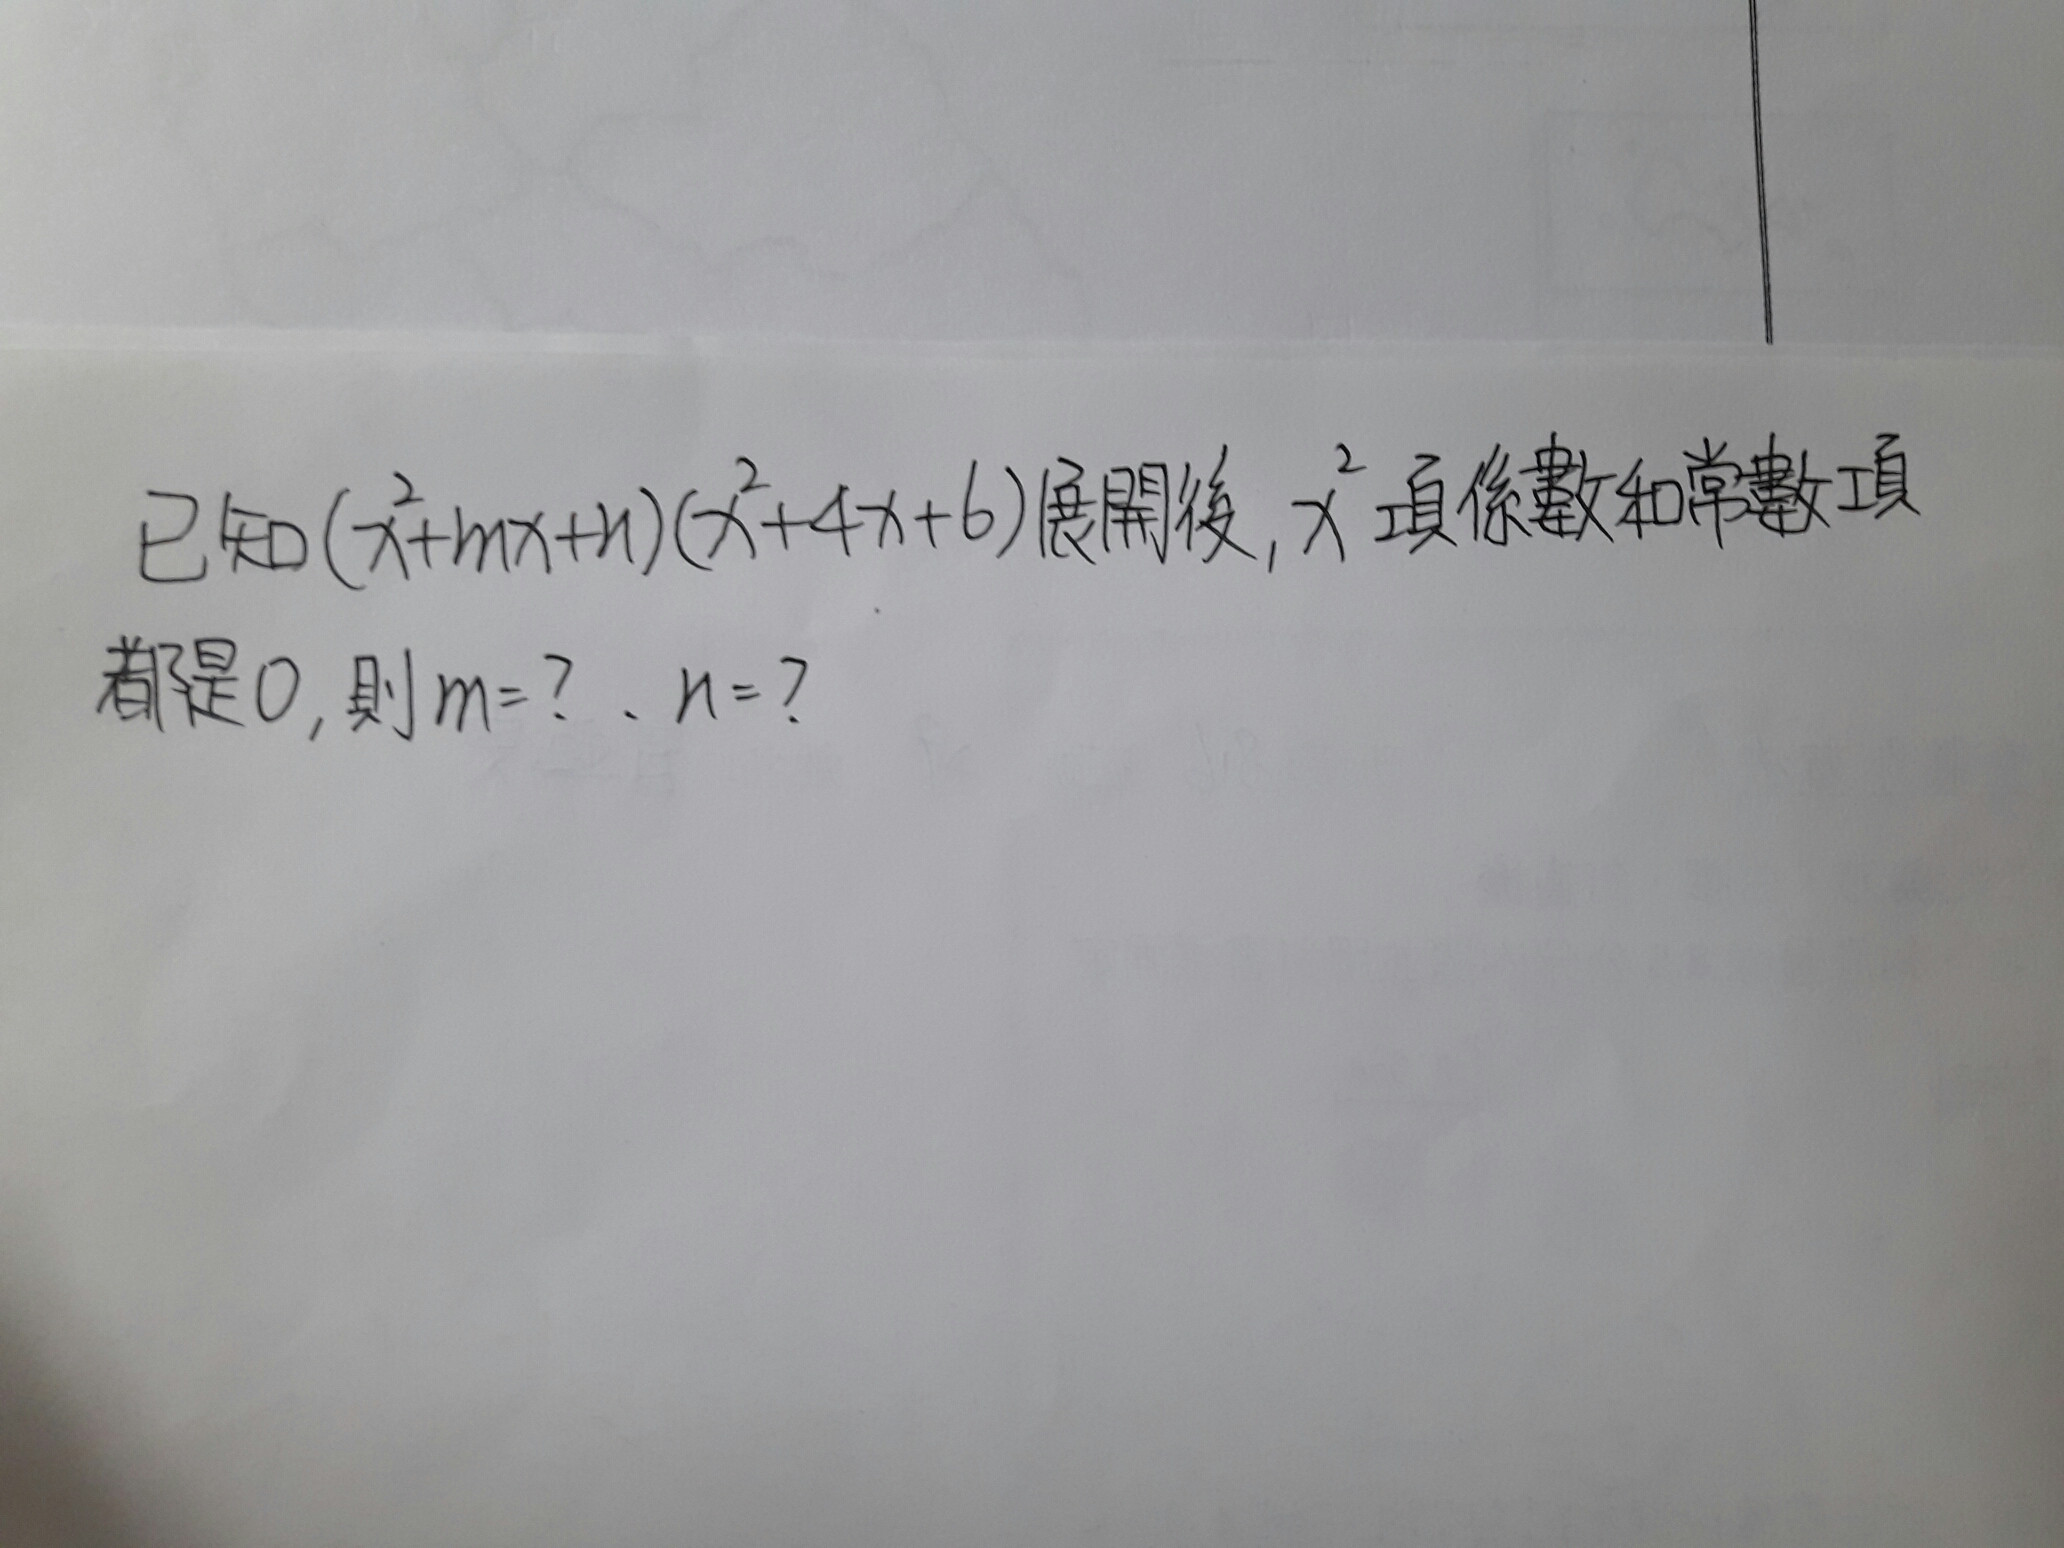 已知(x²+mx+n)(x²+4x+6)展開後,x²項係數和常數項
都是0,則m=?、n=?